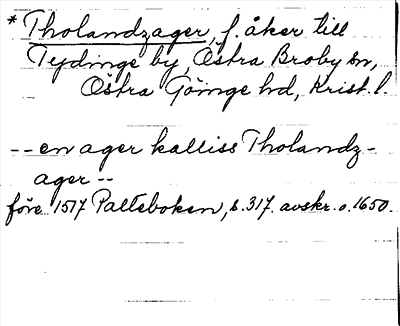 * Tholandzager, f. åker till
Tydinge by, Östra Broby sn,
Östra Göinge hd, Krist. l.
-- en ager kalliss Tholandz-
ager --
före 1517 Palteboken, s. 317. avskr. o. 1650.